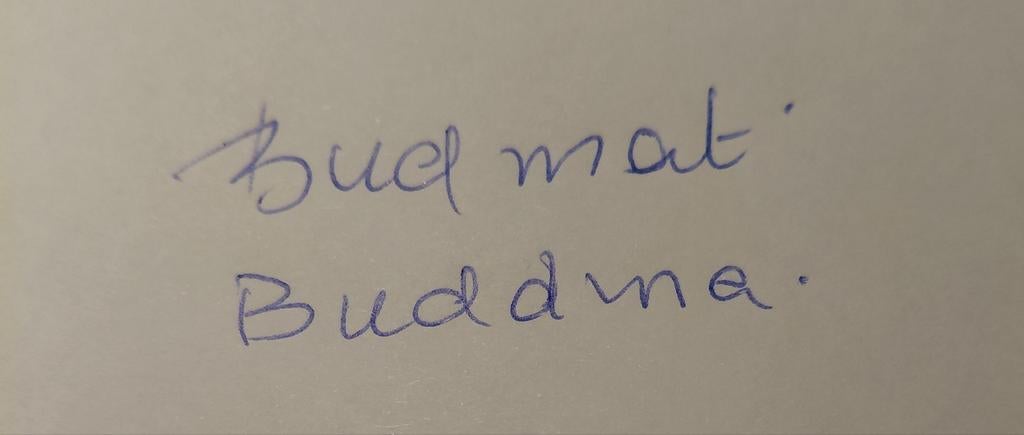 Bud mat.
Buddma.